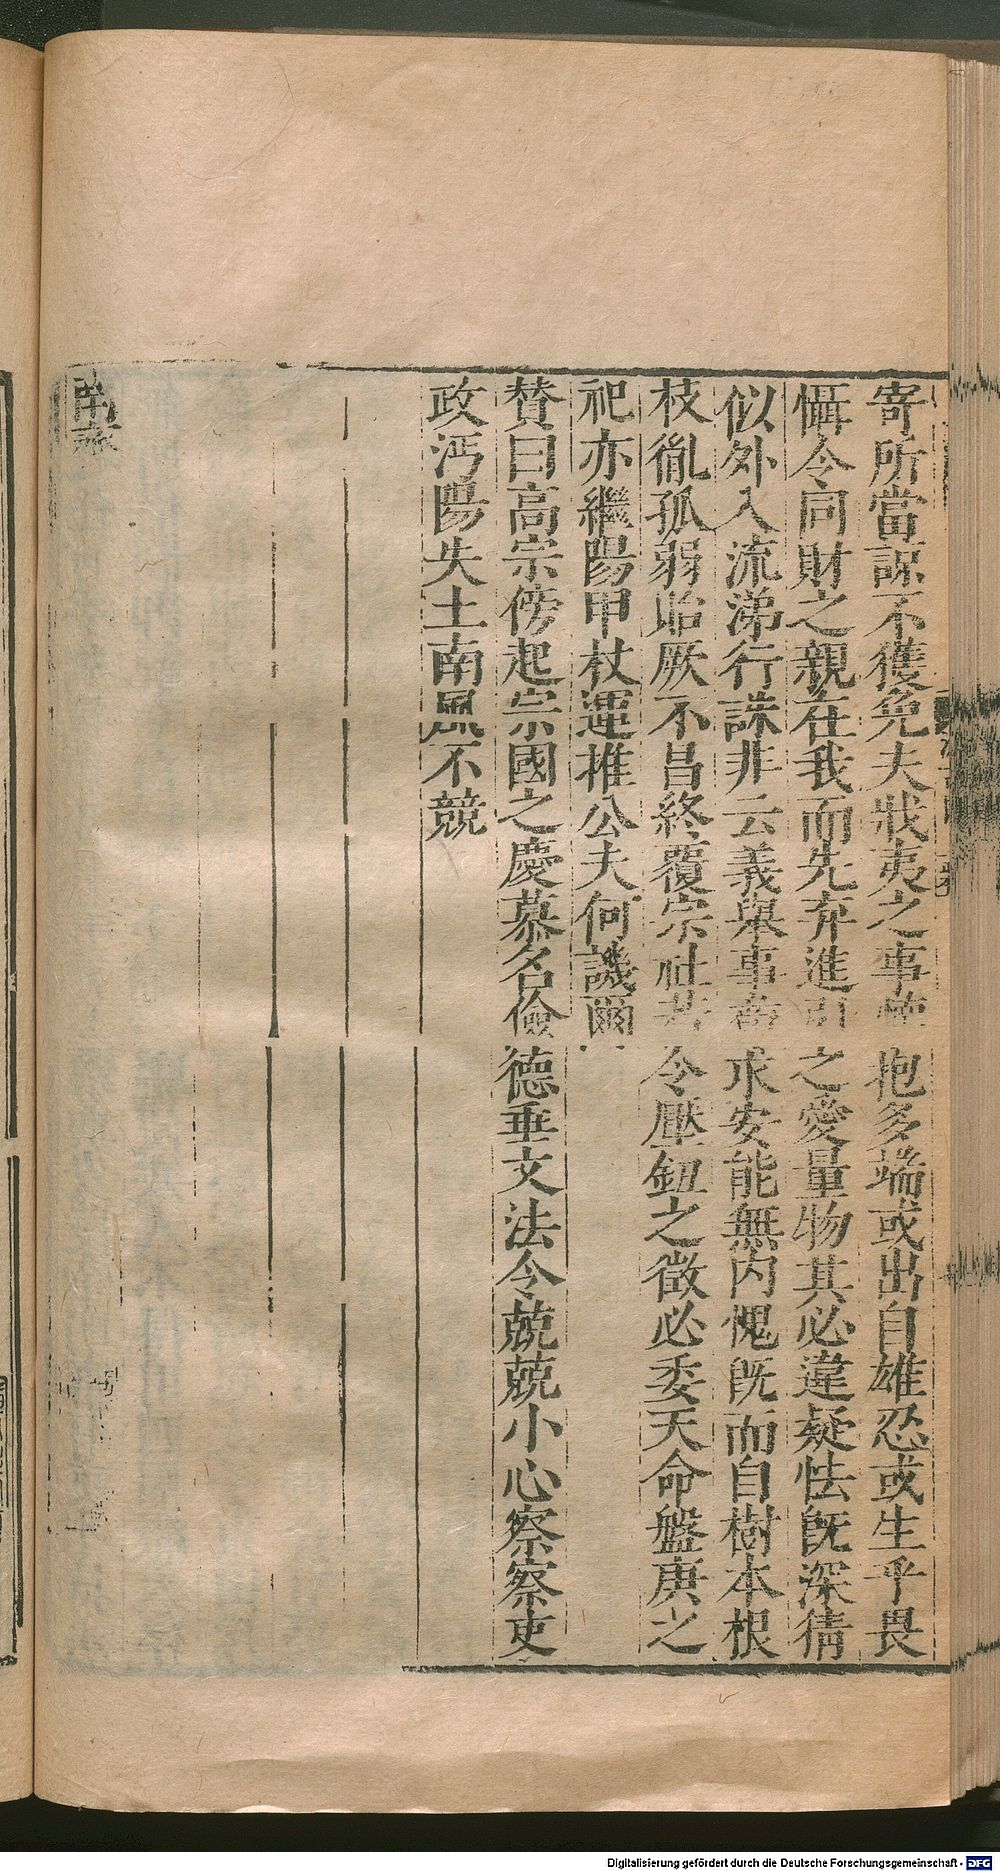 寄所當諒不獲免夫戕夷之事 抱多端或出自雄忍或生乎畏
懾令同財之親在我而先弃進引之愛量物其必違疑怯既深猜
似外入流涕行誅非云義舉事 求安能無内愧既而自樹本根
枝胤孤弱貽厥不昌終覆宗社若令壓鈕之徵必委天命盤庚之
祀亦繼陽甲杖運推公夫何譏爾
贊曰高宗傍起宗國之慶慕名儉德垂文法令兢兢小心察察吏
政沔陽失土南風不競
Digitalisierung gefördert durch die Deutsche Forschungsgemeinschaft - DFG